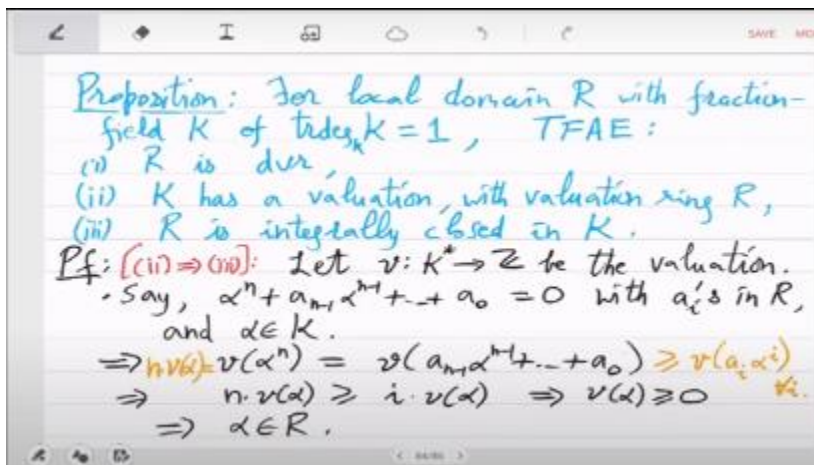 SAVE
Proposition: For local domain R with fraction-
field K of trdeg_k K = 1, TFAE:
(i) R is dvr,
(ii) K has a valuation, with valuation ring R,
(iii) R is integrally closed in K.
Pf: [(ii) ⇒ (iii)]: Let v: K* → Z be the valuation.
· Say, αⁿ + aₙ₋₁ αⁿ⁻¹ + ... + a₀ = 0 with aᵢ's in R,
and α ∈ K.
⇒ n·v(α) = v(αⁿ) = v(aₙ₋₁ αⁿ⁻¹ + ... + a₀) ≥ v(aᵢ αⁱ) ∀i.
⇒ n·v(α) ≥ i·v(α) ⇒ v(α) ≥ 0
⇒ α ∈ R.